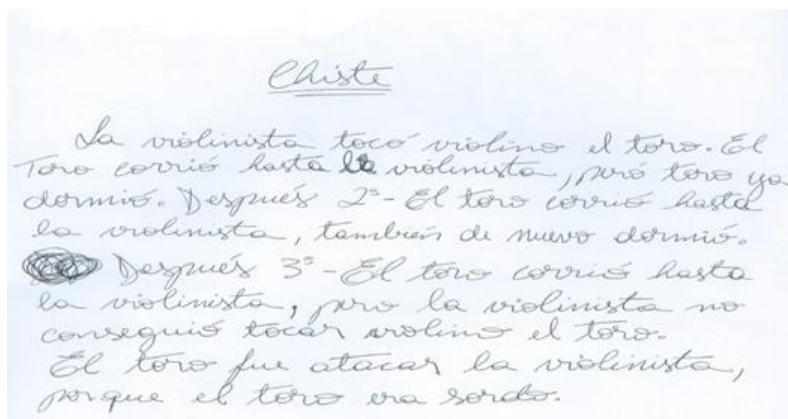 Chiste
La violinista tocó violino el toro. El
Toro corrió hasta la violinista, peró toro ya
dormió. Después 2º - El toro corrió hasta
la violinista, también de nuevo dormió.
Después 3º - El toro corrió hasta
la violinista, pero la violinista no
conseguió tocar violino el toro.
El toro fue atacar la violinista,
porque el toro era sordo.